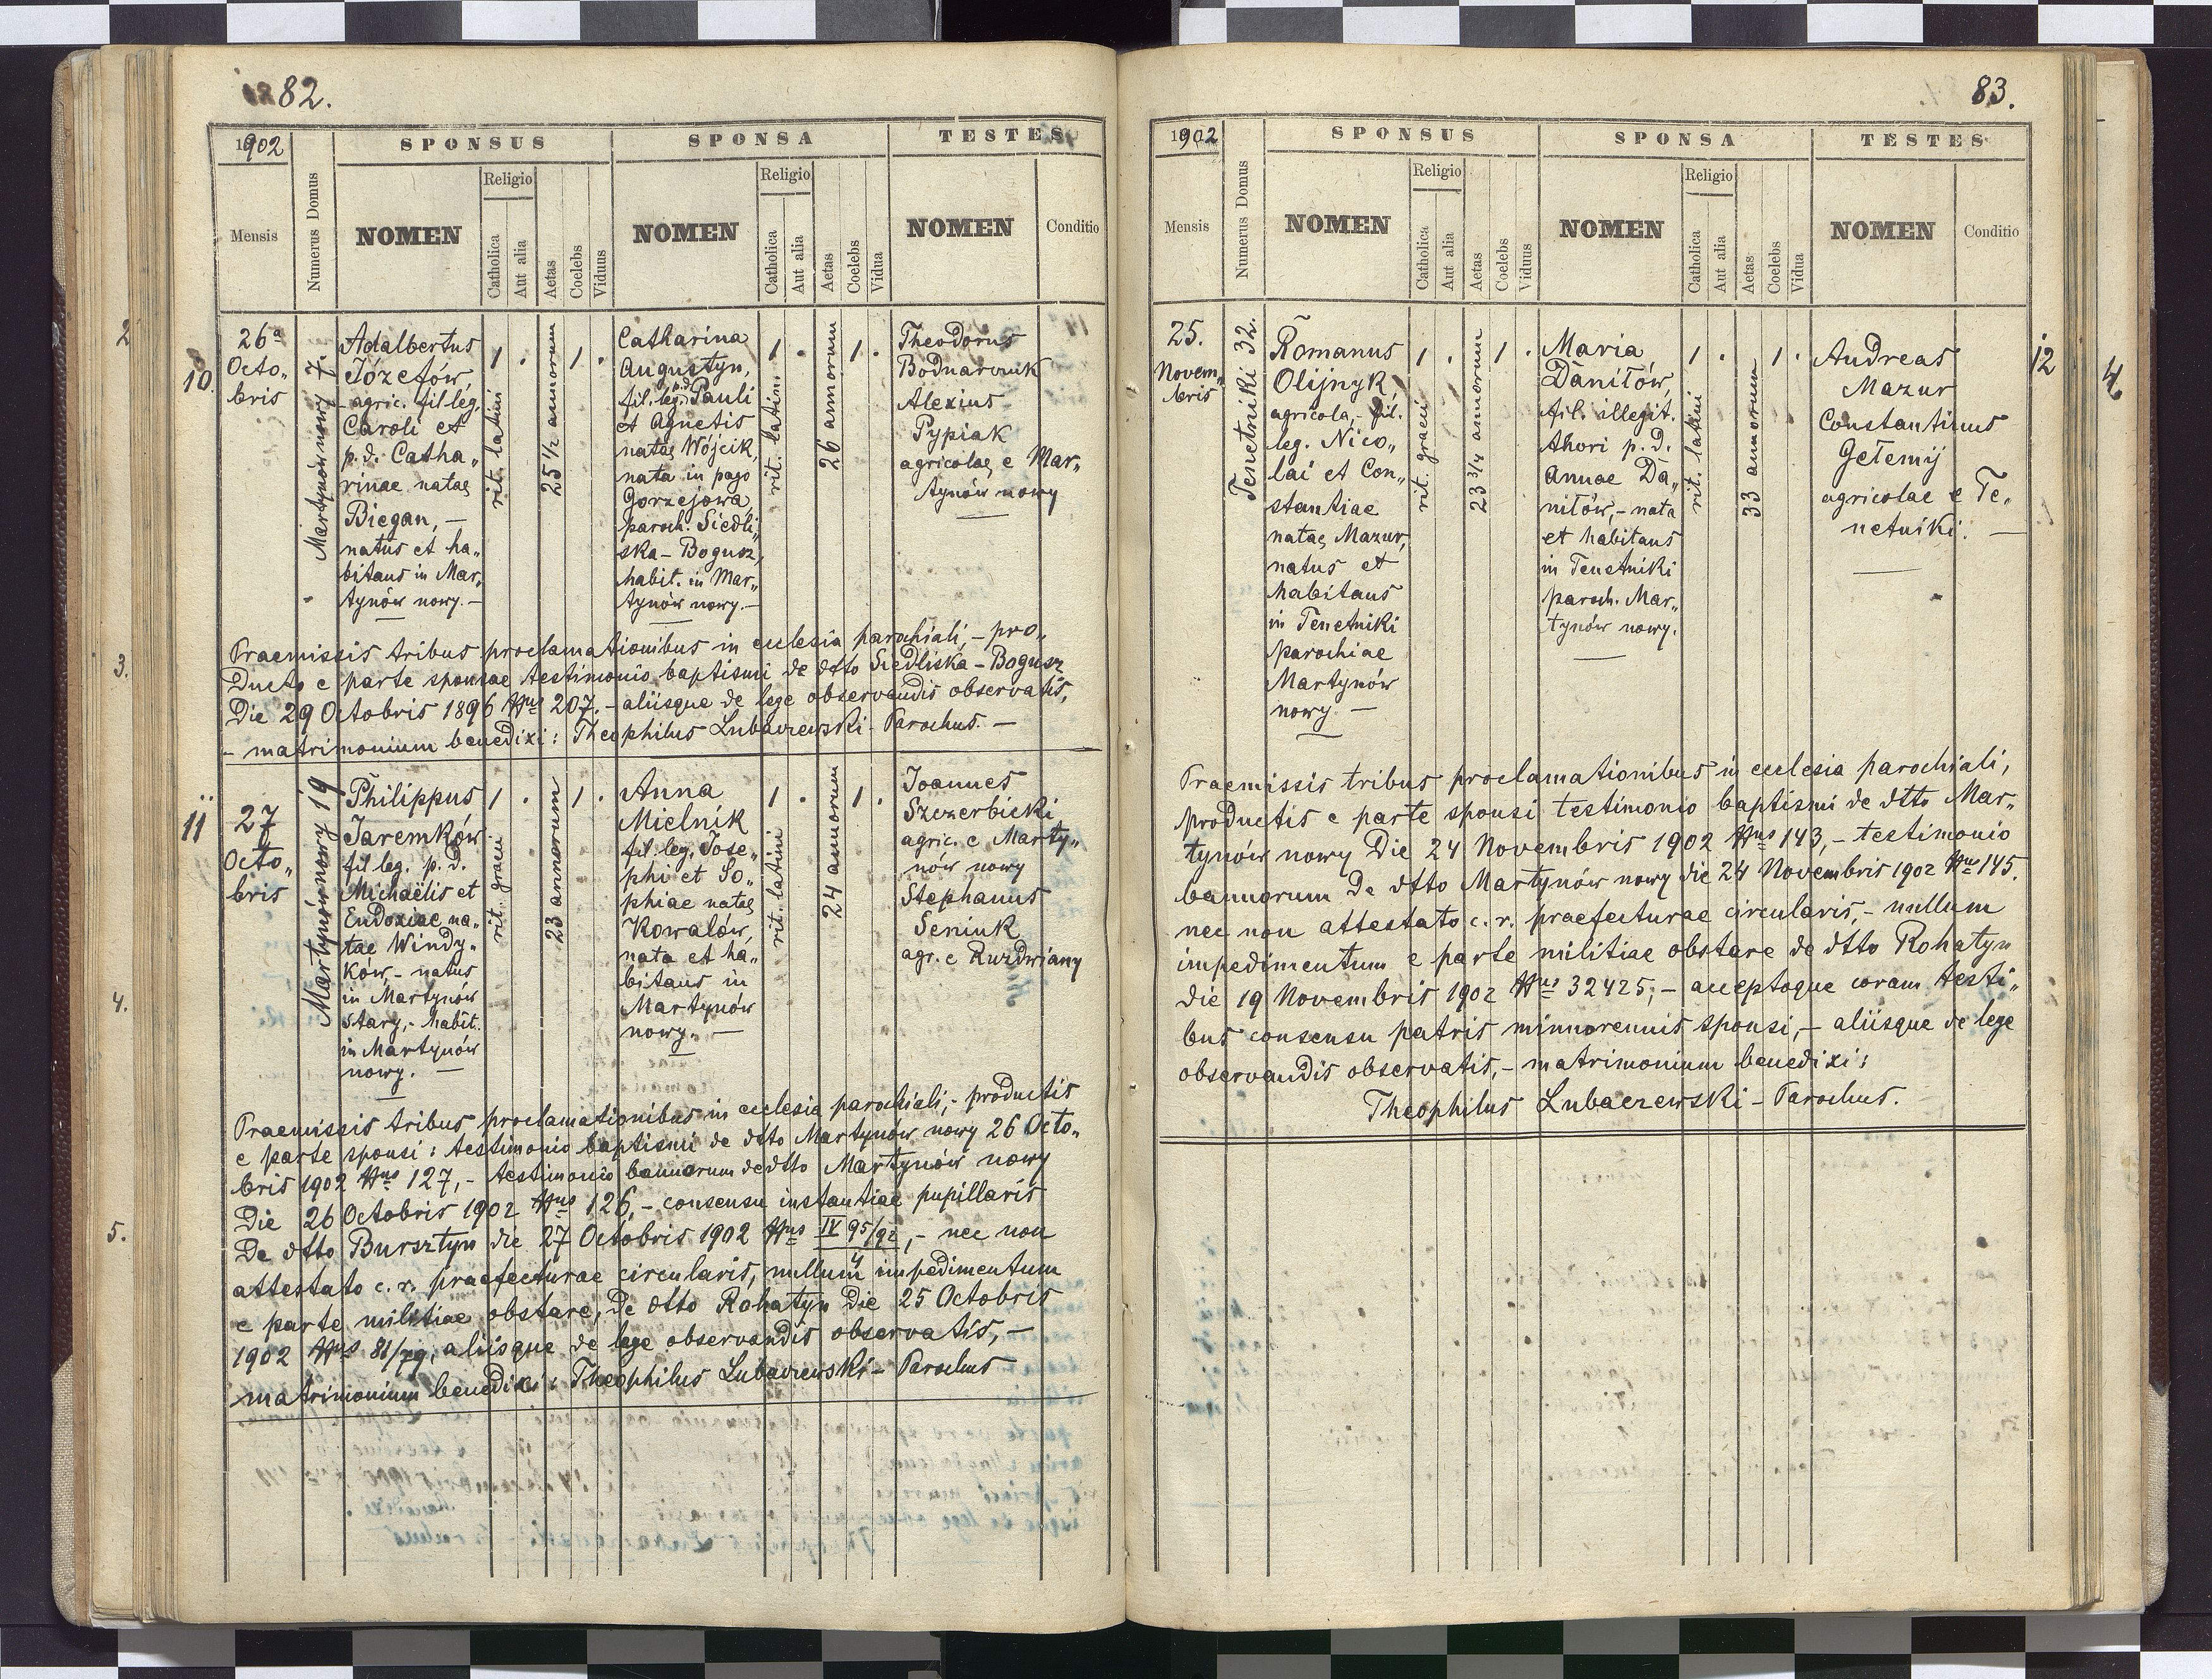 82.
1902
SPONSUS
SPONSA
TESTES
Mensis
Numerus Domus
NOMEN
Religio
Catholica
Aut alia
Aetas
Coelebs
Viduus
NOMEN
Religio
Catholica
Aut alia
Aetas
Coelebs
Vidua
NOMEN
Conditio
10.
26a
Octo„
bris
Martynów nowy 7.
Adalbertus
Józefów,
agric. fil. leg.
Caroli et
p.d. Catha„
rinae natae
Biegan, —
natus et ha„
bitans in Mar„
tynów nowy. —
1 .
rit. latini
25 1/2 annorum
1 .
Catharina
Augustyn,
fil. leg. p.d. Pauli
et Agnetis
natae Wójcik,
nata in pago
Gorzejowa,
paroch. Siedli„
ska - Bogusz,
habit. in Mar„
tynów nowy. —
1 .
rit. latini.
26 annorum
1 .
Theodorus
Bodnarczuk
Alexius
Pypiak
agricolae e Mar„
tynów nowy
Praemissis tribus proclamationibus in ecclesia parochiali, — pro„
ducto e parte sponsae testimonio baptismi de dtto Siedliska - Bogusz
die 29 Octobris 1896 Nus 207. — aliisque de lege observandis observatis,
— matrimonium benedixi: Theophilus Lubaczewski - Parochus. —
11
27
Octo„
bris
Martynów nowy 19
Philippus
Jaremków
fil. leg. p. d.
Michaëlis et
Eudoxiae na„
tae Windy„
ków, — natus
in Martynów
stary, - habit.
in Martynów
nowy. —
1 .
rit. graeci
23 annorum
1 .
Anna
Mielnik
fil. leg. Jose„
phi et So„
phiae natae
Kowalów,
nata et ha„
bitans in
Martynów
nowy. —
1 .
rit. latini
24 annorum
1 .
Joannes
Szczerbicki
agric. e Marty„
nów nowy
Stephanus
Seniuk
agr. e Kuzdwiany
Praemissis tribus proclamationibus in ecclesia parochiali, - productis
e parte sponsi: testimonio baptismi de dtto Martynów nowy 26 Octo„
bris 1902 Nus 127, — testimonio bannorum de dtto Martynów nowy
die 26 Octobris 1902 Nus 126, — consensu instantiae pupillaris
de dtto Bursztyn die 27 Octobris 1902 Nus IV 95/92, — nec non
4
attestato c. r. praefecturae circularis, nullum impedimentum
e parte militiae obstare, de dtto Rohatyn die 25 Octobris
1902 Nus 81/79, aliisque de lege observandis observatis, —
matrimonium benedixi: Theophilus Lubaczewski - Parochus
2
3.
4.
5.
83.
1902
SPONSUS
SPONSA
TESTES
Mensis
Numerus Domus
NOMEN
Religio
Catholica
Aut alia
Aetas
Coelebs
Viduus
NOMEN
Religio
Catholica
Aut alia
Aetas
Coelebs
Vidua
NOMEN
Conditio
25.
Novem„
bris
Tenetniki 32.
Romanus
Olijnyk,
agricola, - fil.
leg. Nico„
lai et Con„
stantiae
natae Mazur,
natus et
habitans
in Tenetniki
parochiae
Martynów
nowy —
1 .
rit. graeci
23 3/4 annorum
1 .
Maria
Daniłów,
fil. illegit.
thori p. d.
Annae Da„
niłów, - nata
et habitans
in Tenetniki
paroch. Mar„
tynów nowy.
1 .
rit. latini
33 annorum
1 .
Andreas
Mazur
Constantinus
Gełemij
agricolae e Te„
netniki. —
12
4
Praemissis tribus proclamationibus in ecclesia parochiali,
productis e parte sponsi testimonio baptismi de dtto Mar„
tynów nowy die 24 Novembris 1902 Nus 143, — testimonio
bannorum de dtto Martynów nowy die 24 Novembris 1902 Nus 145.
nec non attestato c. r. praefecturae circularis, — nullum
impedimentum e parte militiae obstare de dtto Rohatyn
die 19 Novembris 1902 Nus 32425; — acceptoque coram testi„
bus consensu patris minorennis sponsi, — aliisque de lege
observandis observatis, — matrimonium benedixi:
Theophilus Lubaczewski - Parochus.